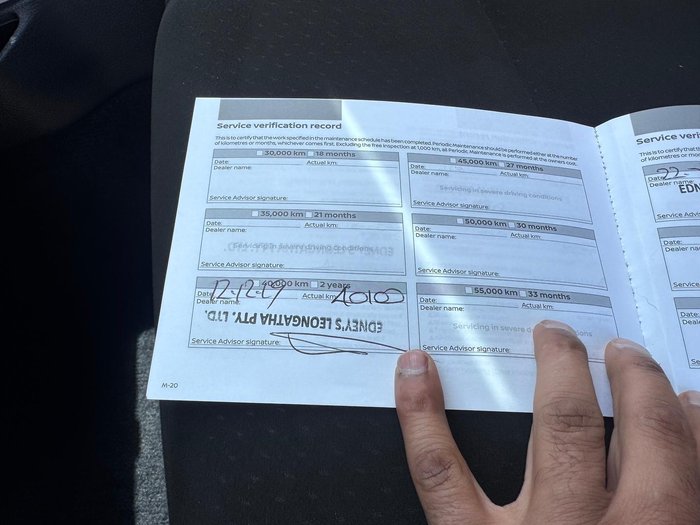 Service verification record
This is to certify that the work specified in the maintenance schedule has been completed. Periodic Maintenance should be performed either at the number
of kilometres or months, whichever comes first. Excluding the free inspection at 1,000 km, all Periodic Maintenance is performed at the owners cost.
30,000 km 18 months
Date: Actual km:
Dealer name:
Service Advisor signature:
35,000 km 21 months
Date: Actual km:
Dealer name:
Servicing in severe driving conditions
Service Advisor signature:
40,000 km 2 years
Date: 12-12-19 Actual km: 40100
Dealer name:
EDNEY'S LEONGATHA PTY. LTD.
Service Advisor signature:
M-20
45,000 km 27 months
Date: Actual km:
Dealer name:
Servicing in severe driving conditions
Service Advisor signature:
50,000 km 30 months
Date: Actual km:
Dealer name:
Service Advisor signature:
55,000 km 33 months
Date: Actual km:
Dealer name:
Servicing in severe driving conditions
Service Advisor signature:
Service veri
This is to certify that th
of kilometres or mon
Date: 22-
Dealer name:
EDN
Service Advisor
Date:
Dealer name:
Service Advisor
Date:
Dealer name: